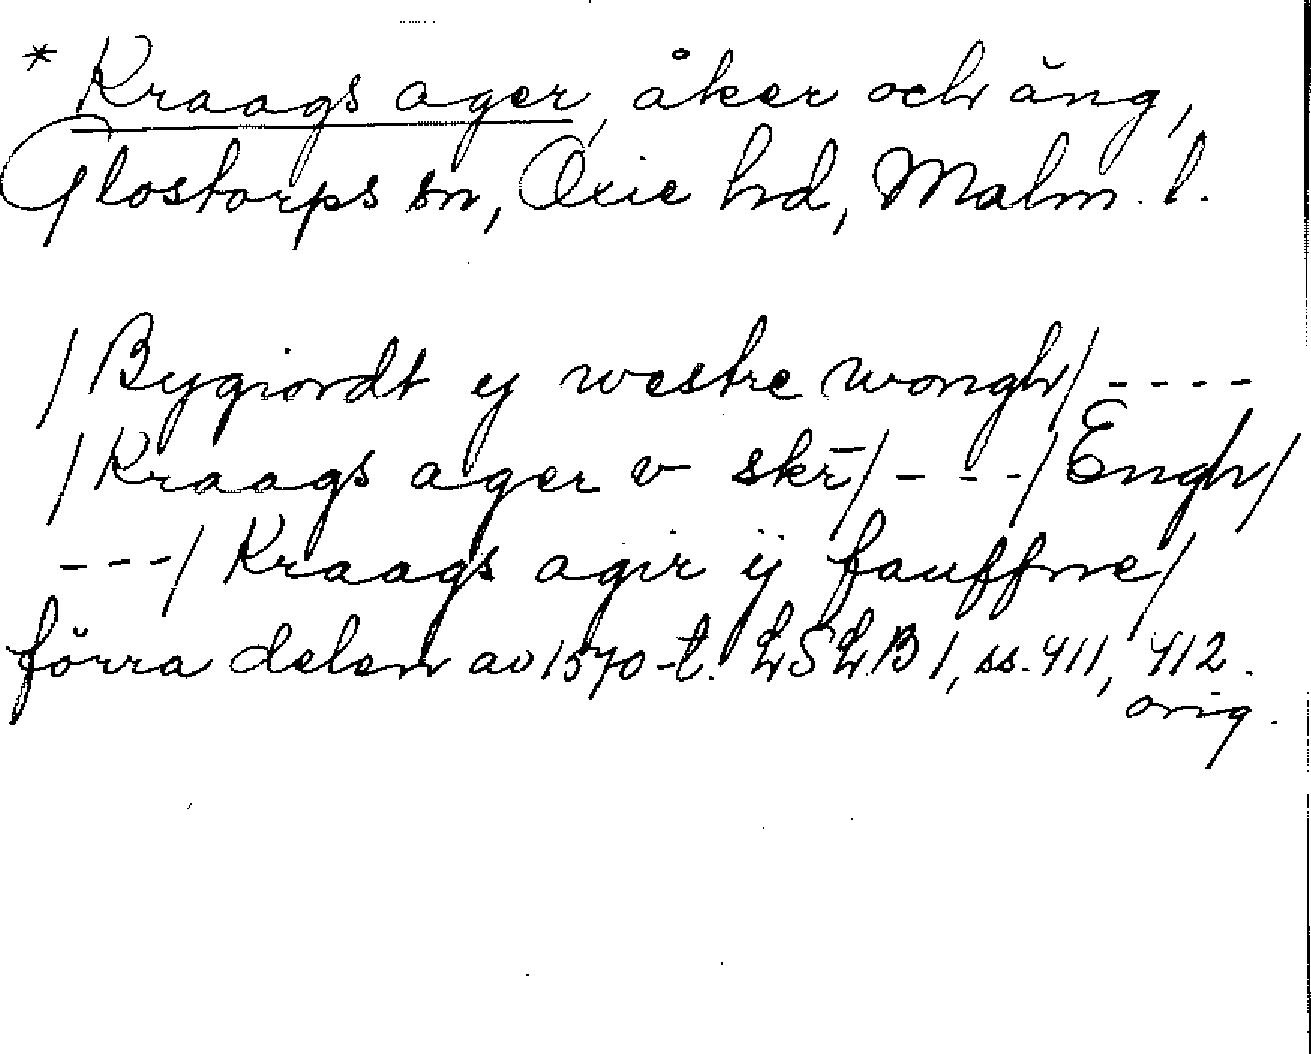 * Kraags ager, åker och äng,
Glostorps sn, Oxie hd, Malm. l.
/Bygiordt ij westre wongh/ ----
/Kraags ager v skr̄/ - --/Engh/
---/Kraags agir ij fauffne/
förra delen av 1570-t. LSLB 1, ss. 411, 412.
orig.